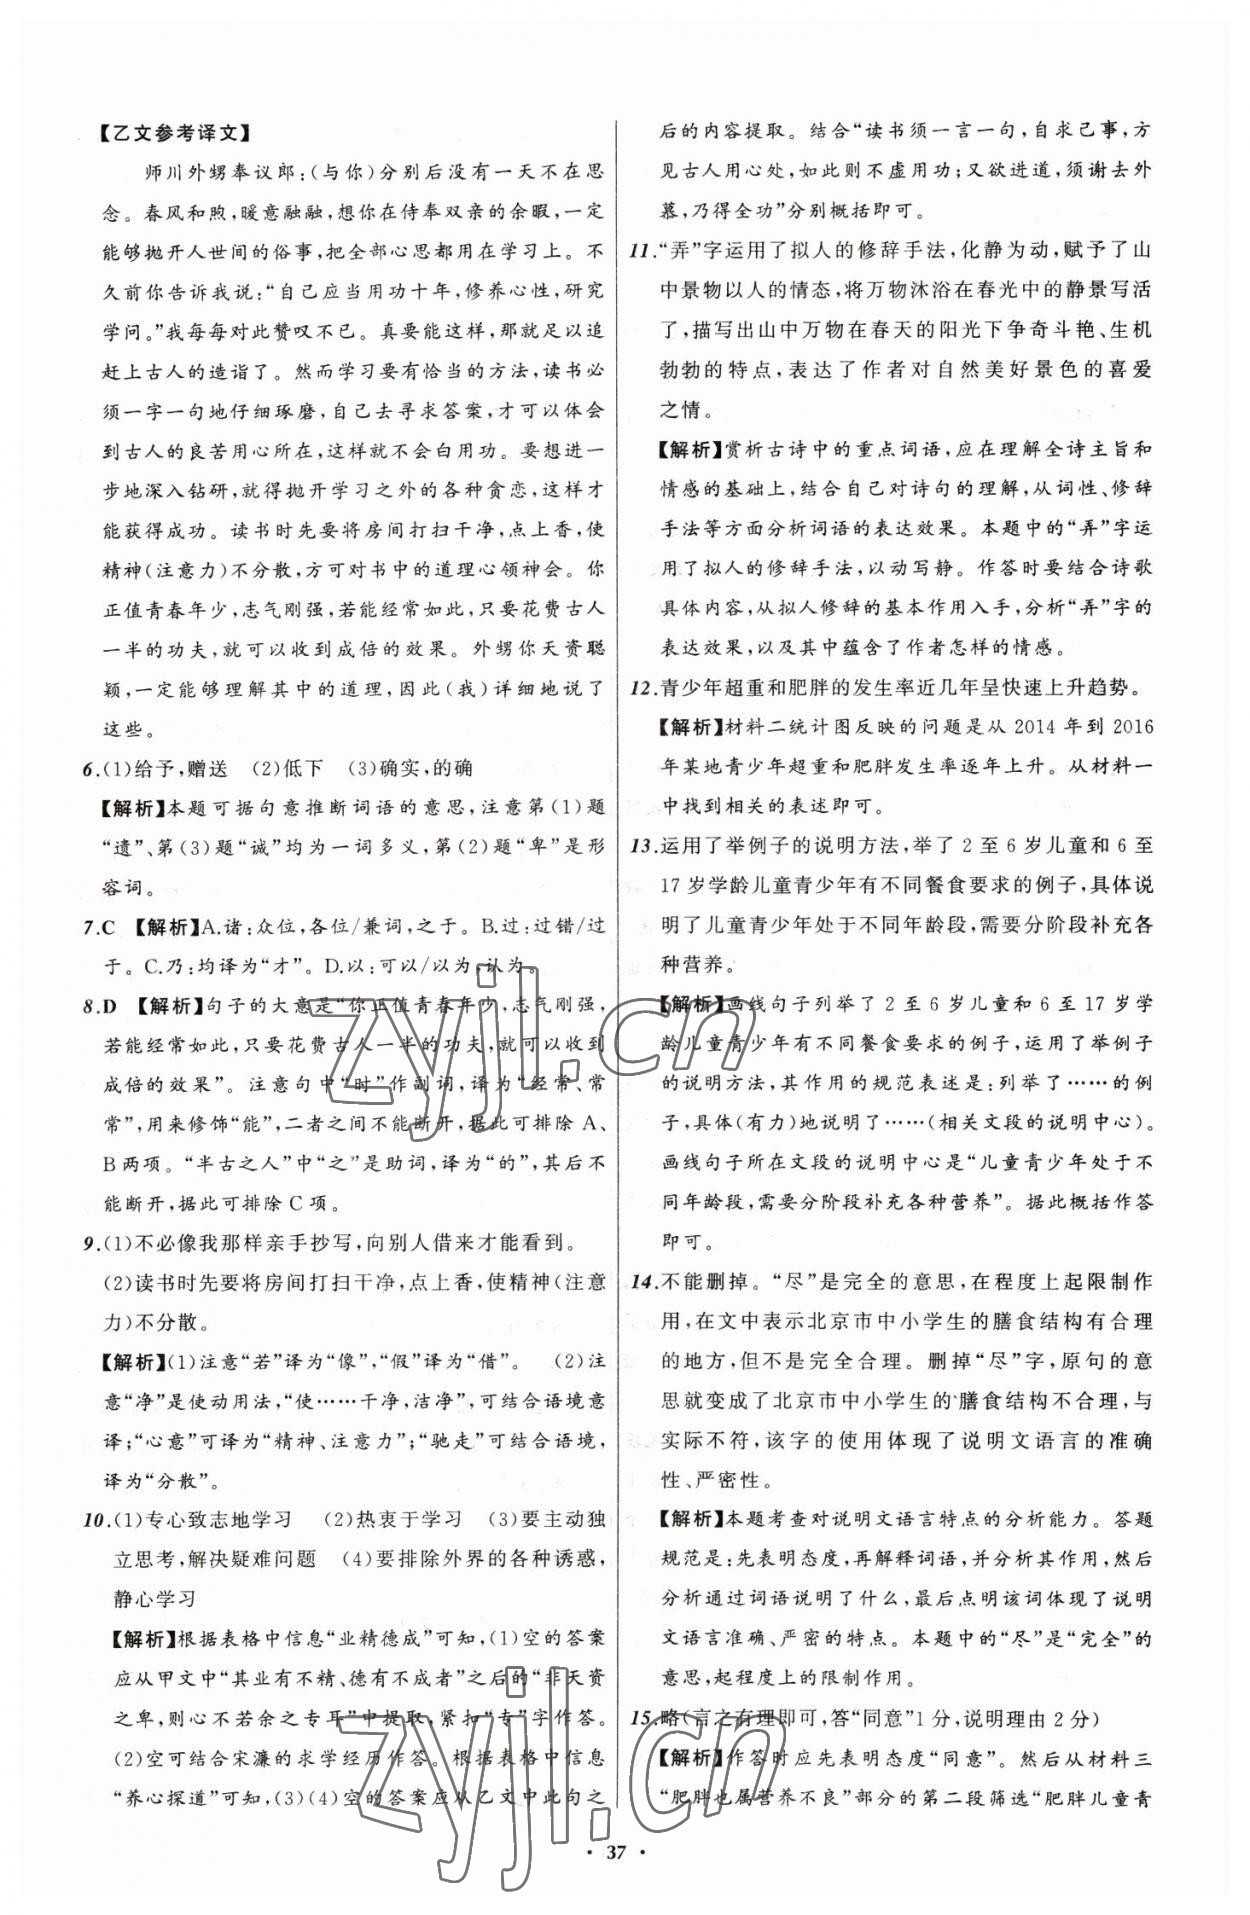 【乙文参考译文】
师川外甥奉议郎:(与你)分别后没有一天不在思
念。春风和煦,暖意融融,想你在侍奉双亲的余暇,一定
能够抛开人世间的俗事,把全部心思都用在学习上。不
久前你告诉我说:“自己应当用功十年,修养心性,研究
学问。”我每每对此赞叹不已。真要能这样,那就足以追
赶上古人的造诣了。然而学习要有恰当的方法,读书必
须一字一句地仔细琢磨,自己去寻求答案,才可以体会
到古人的良苦用心所在,这样就不会白用功。要想进一
步地深入钻研,就得抛开学习之外的各种贪恋,这样才
能获得成功。读书时先要将房间打扫干净,点上香,使
精神(注意力)不分散,方可对书中的道理心领神会。你
正值青春年少,志气刚强,若能经常如此,只要花费古人
一半的功夫,就可以收到成倍的效果。外甥你天资聪
颖,一定能够理解其中的道理,因此(我)详细地说了
这些。
6.(1)给予,赠送 (2)低下 (3)确实,的确
【解析】本题可据句意推断词语的意思,注意第(1)题
“遗”、第(3)题“诚”均为一词多义,第(2)题“卑”是形
容词。
7.C 【解析】A.诸:众位,各位/兼词,之于。B.过:过错/过
于。C.乃:均译为“才”。D.以:可以/以为,认为。
8.D 【解析】句子的大意是“你正值青春年少,志气刚强,
若能经常如此,只要花费古人一半的功夫,就可以收到
成倍的效果”。注意句中“时”作副词,译为“经常、常
常”,用来修饰“能”,二者中间不能断开,据此可排除 A、
B两项。“半古之人”中“之”是助词,译为“的”,其后不
能断开,据此可排除C项。
9.(1)不必像我那样亲手抄写,向别人借来才能看到。
(2)读书时先要将房间打扫干净,点上香,使精神(注意
力)不分散。
【解析】(1)注意“若”译为“像”,“假”译为“借”。 (2)注
意“净”是使动用法,“使……干净,洁净”,可结合语境意
译;“心意”可译为“精神、注意力”;“驰走”可结合语境,
译为“分散”。
10.(1)专心致志地学习 (2)热衷于学习 (3)要主动独
立思考,解决疑难问题 (4)要排除外界的各种诱惑,
静心学习
【解析】根据表格中信息“业精德成”可知,(1)空的答案
应从甲文中“其业有不精、德有不成者”之后的“非天资
之卑,则心不若余之专耳”中提取,紧扣“专”字作答。
(2)空可结合宋濂的求学经历作答。根据表格中信息
“养心探道”可知,(3)(4)空的答案应从乙文中此句之
后的内容提取。结合“读书须一言一句,自求己事,方
见古人用心处,如此则不虚用功;又欲进道,须谢去外
慕,乃得全功”分别概括即可。
11.“弄”字运用了拟人的修辞手法,化静为动,赋予了山
中景物以人的情态,将万物沐浴在春光中的静景写活
了,描写出山中万物在春天的阳光下争奇斗艳、生机
勃勃的特点,表达了作者对自然美好景色的喜爱
之情。
【解析】赏析古诗中的重点词语,应在理解全诗主旨和
情感的基础上,结合自己对诗句的理解,从词性、修辞
手法等方面分析词语的表达效果。本题中的“弄”字运
用了拟人的修辞手法,以动写静。作答时要结合诗歌
具体内容,从拟人修辞的基本作用入手,分析“弄”字的
表达效果,以及其中蕴含了作者怎样的情感。
12.青少年超重和肥胖的发生率近几年呈快速上升趋势。
【解析】材料二统计图反映的问题是从 2014 年到 2016
年某地青少年超重和肥胖发生率逐年上升。从材料一
中找到相关的表述即可。
13.运用了举例子的说明方法,举了 2 至 6 岁儿童和 6 至
17 岁学龄儿童青少年有不同餐食要求的例子,具体说
明了儿童青少年处于不同年龄段,需要分阶段补充各
种营养。
【解析】画线句子列举了 2 至 6 岁儿童和 6 至 17 岁学
龄儿童青少年有不同餐食要求的例子,运用了举例子
的说明方法,其作用的规范表述是:列举了……的例
子,具体(有力)地说明了……(相关文段的说明中心)。
画线句子所在文段的说明中心是“儿童青少年处于不
同年龄段,需要分阶段补充各种营养”。据此概括作答
即可。
14.不能删掉。“尽”是完全的意思,在程度上起限制作
用,在文中表示北京市中小学生的膳食结构有合理
的地方,但不是完全合理。删掉“尽”字,原句的意
思就变成了北京市中小学生的膳食结构不合理,与
实际不符,该字的使用体现了说明文语言的准确
性、严密性。
【解析】本题考查对说明文语言特点的分析能力。答题
规范是:先表明态度,再解释词语,并分析其作用,然后
分析通过词语说明了什么,最后点明该词体现了说明
文语言准确、严密的特点。本题中的“尽”是“完全”的
意思,起程度上的限制作用。
15.略(言之有理即可,答“同意”1 分,说明理由 2 分)
【解析】作答时应先表明态度“同意”。然后从材料三
“肥胖也属营养不良”部分的第二段筛选“肥胖儿童青
· 37 ·
zyjl.cn
zyjl.cn